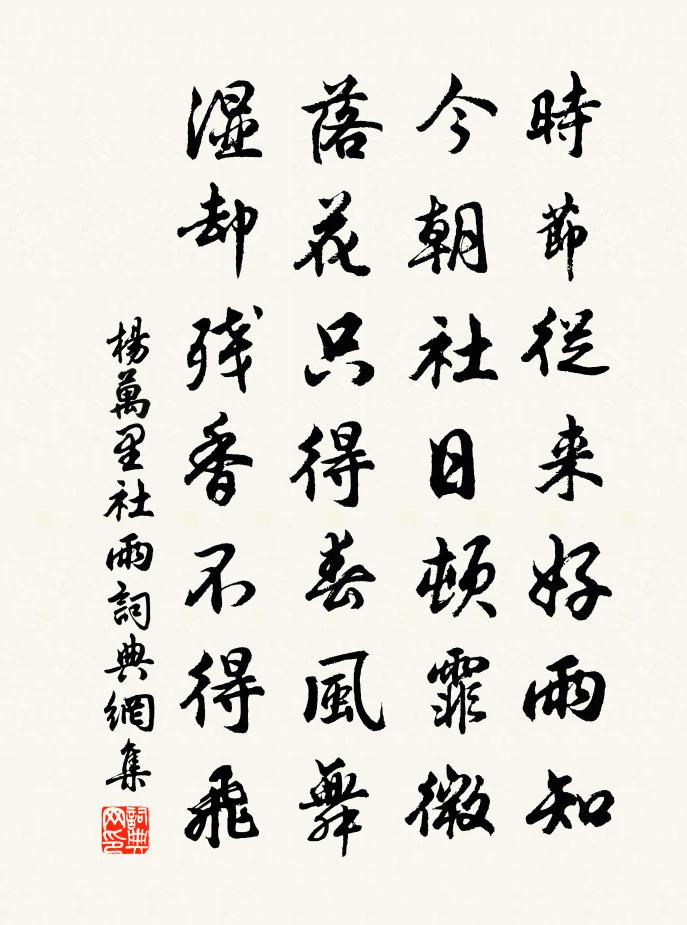 時節從来好雨知
今朝社日頓霏微
落花只得春風舞
湿却残香不得飛
楊萬里社雨詞典網集
詞典网印